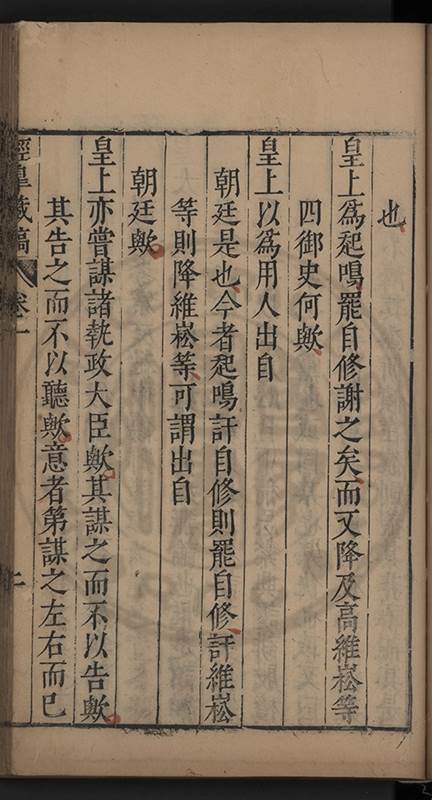 也
皇上爲起鳴罷自修謝之矣而又降及高維崧等
四御史何歟
皇上以爲用人出自
朝廷是也今者起鳴訐自修則罷自修訐維崧
等則降維崧等可謂出自
朝廷歟
皇上亦嘗謀諸執政大臣歟其謀之而不以告歟
其告之而不以聽歟意者第謀之左右而已
經皋藏稿 卷一